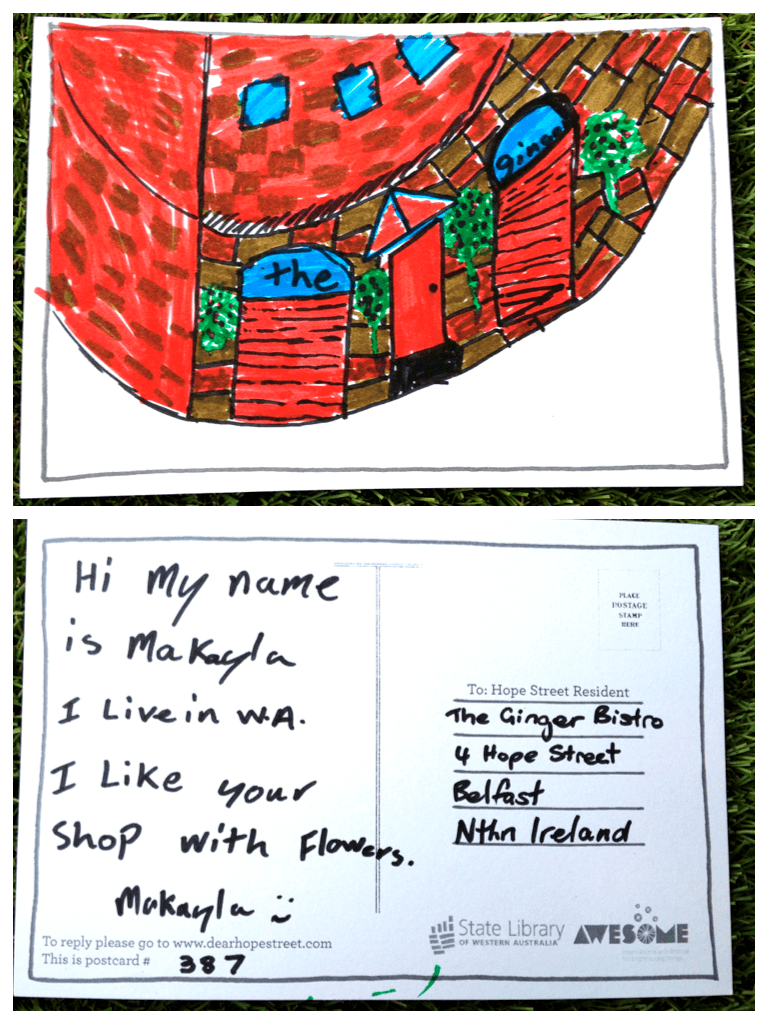 the
ginger
Hi my name
is Makayla
I Live in W.A.
I Like your
Shop with Flowers.
Makayla
To reply please go to www.dearhopestreet.com
This is postcard # 387
PLACE
POSTAGE
STAMP
HERE
To: Hope Street Resident
The Ginger Bistro
4 Hope Street
Belfast
Nthn Ireland
State Library
OF WESTERN AUSTRALIA
AWESOME